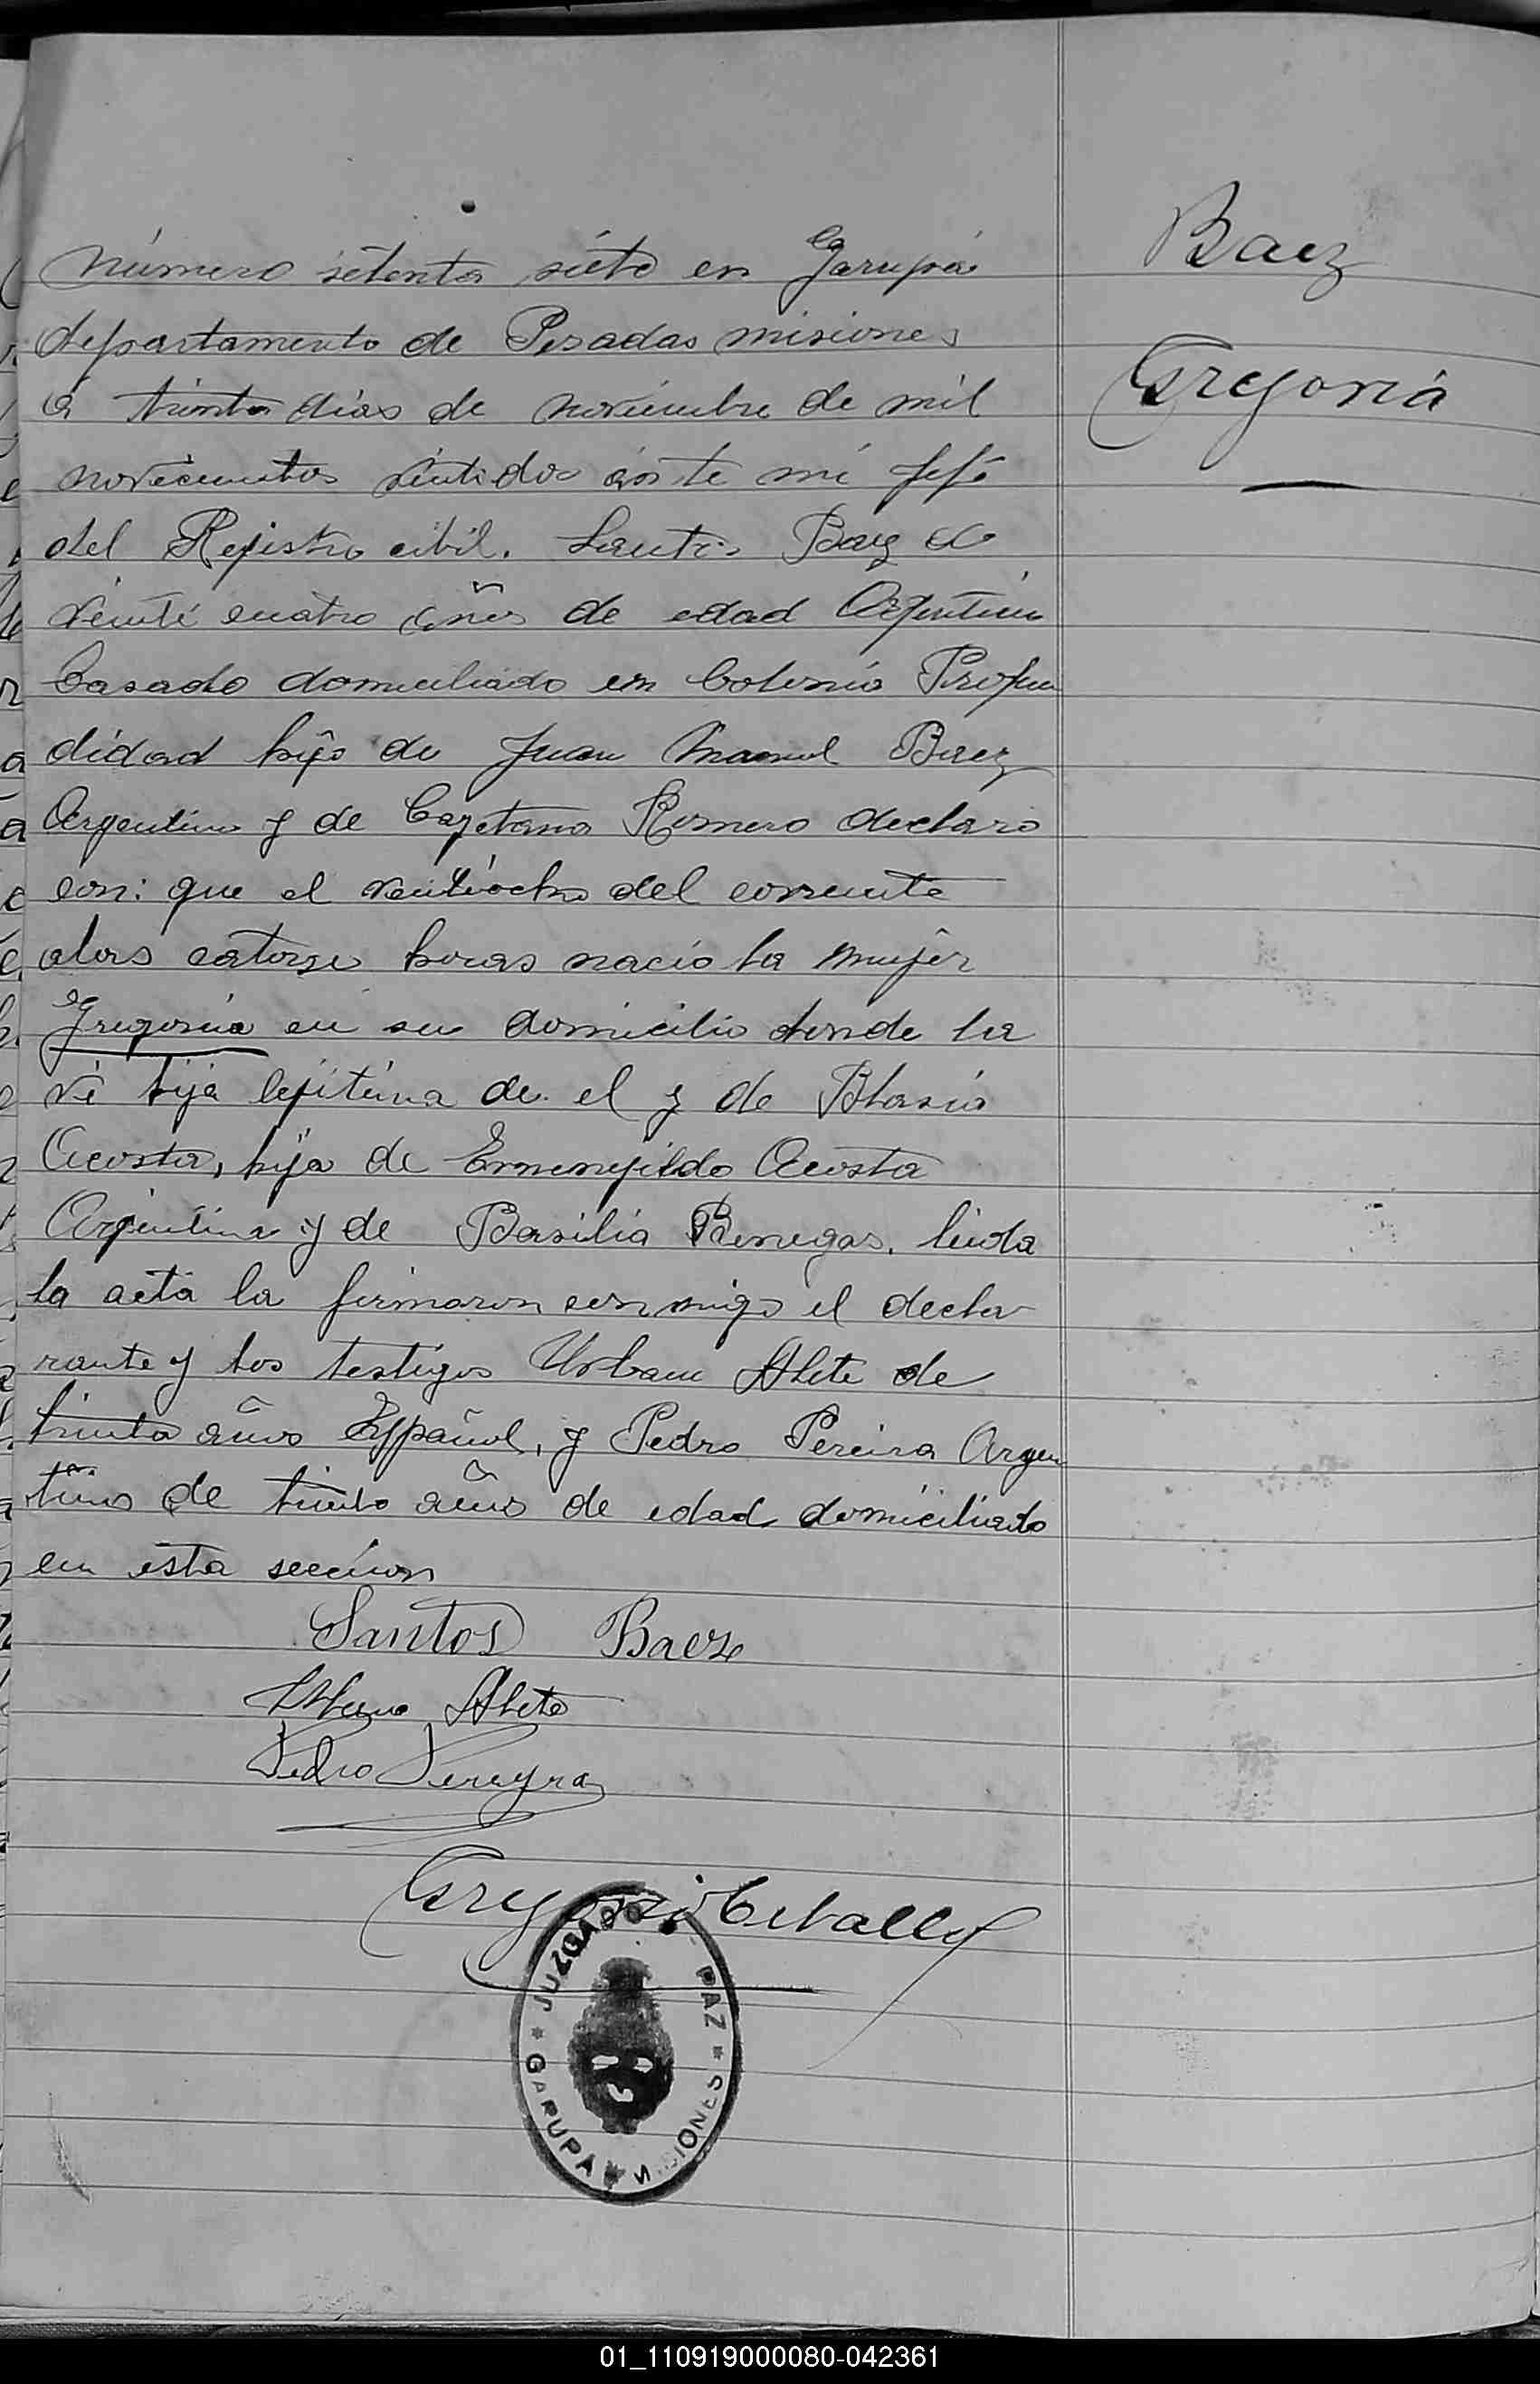 Baez
Gregoria
número setenta siete en Garupá
departamento de Posadas misiones
á trinta dias de noviembre de mil
novecientos veintidos ante mi Jefe
del Rejistro cibil. Santos Baez de
veinte cuatro años de edad Argentino
Casado domiciliado en Colonia Profun
didad hijo de Juan Manuel Baez
Argentino y de Cayetana Romero declaró
con: que el veintiocho del corriente
alas catorse horas nació la mujer
Gregoria en su domicilio donde la
vi hija lejitima de el y de Blasia
Acosta, hija de Ermenejildo Acosta
Argentina y de Basilia Benegas. leida
la acta la firmaron conmigo el decla
rante y los testigos Urbano Alete de
trinta años Español, y Pedro Pereira Argen
tino de trinta años de edad domiciliado
en esta seccion
Santos Baez
Urbano Alete
Pedro Pereyra
Gregorio Ceballos
JUZGADO PAZ
* GARUPÁ * MISIONES *
01_110919000080-042361